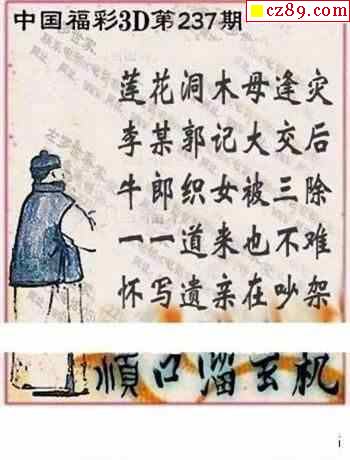 cz89.com
中国福彩3D第237期
莲花洞木母逢灾
李某郭记大交后
牛郎织女被三除
一一道来也不难
怀写遗亲在吵架
顺口溜玄机